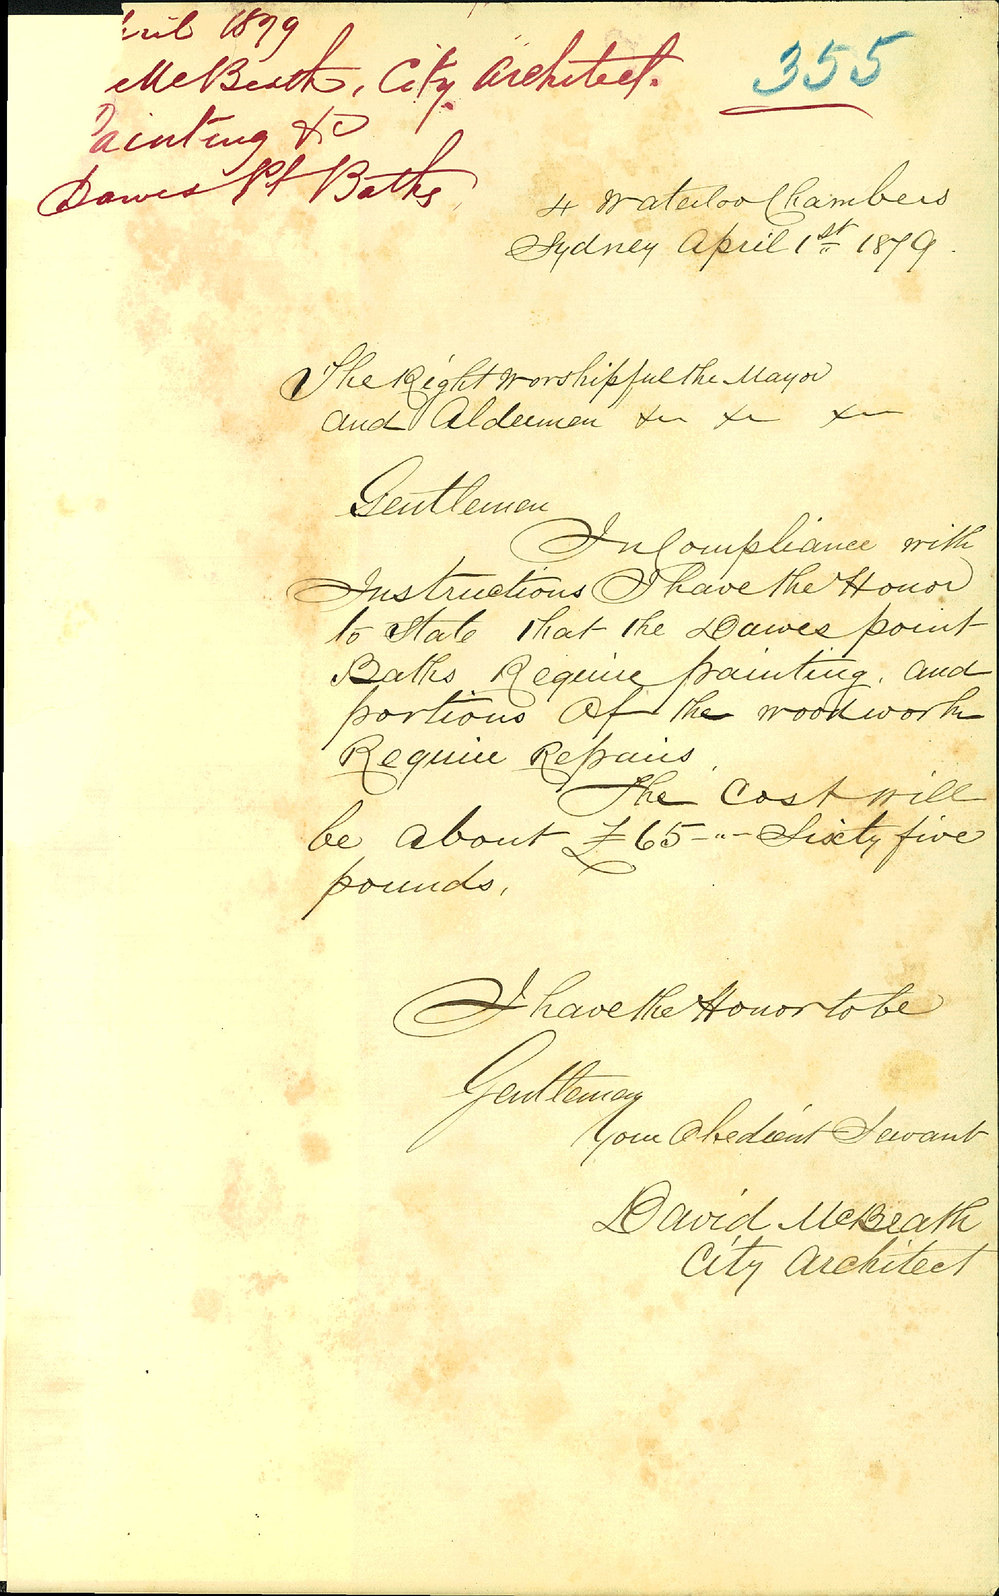 pril 1879
McBeath, City Architect.
Painting &c
Dawes Pt Baths,
355
4 Waterloo Chambers
Sydney April 1st 1879.
The Right Worshipful the Mayor
and Aldermen &c &c &c
Gentlemen
In Compliance with
Instructions I have the Honor
to State that the Dawes point
Baths Require painting. and
portions of the woodwork
Require Repairs.
The Cost will
be about £65-"- Sixty five
pounds.
I have the Honor to be
Gentlemen
Your Obedient Servant
David McBeath
City Architect